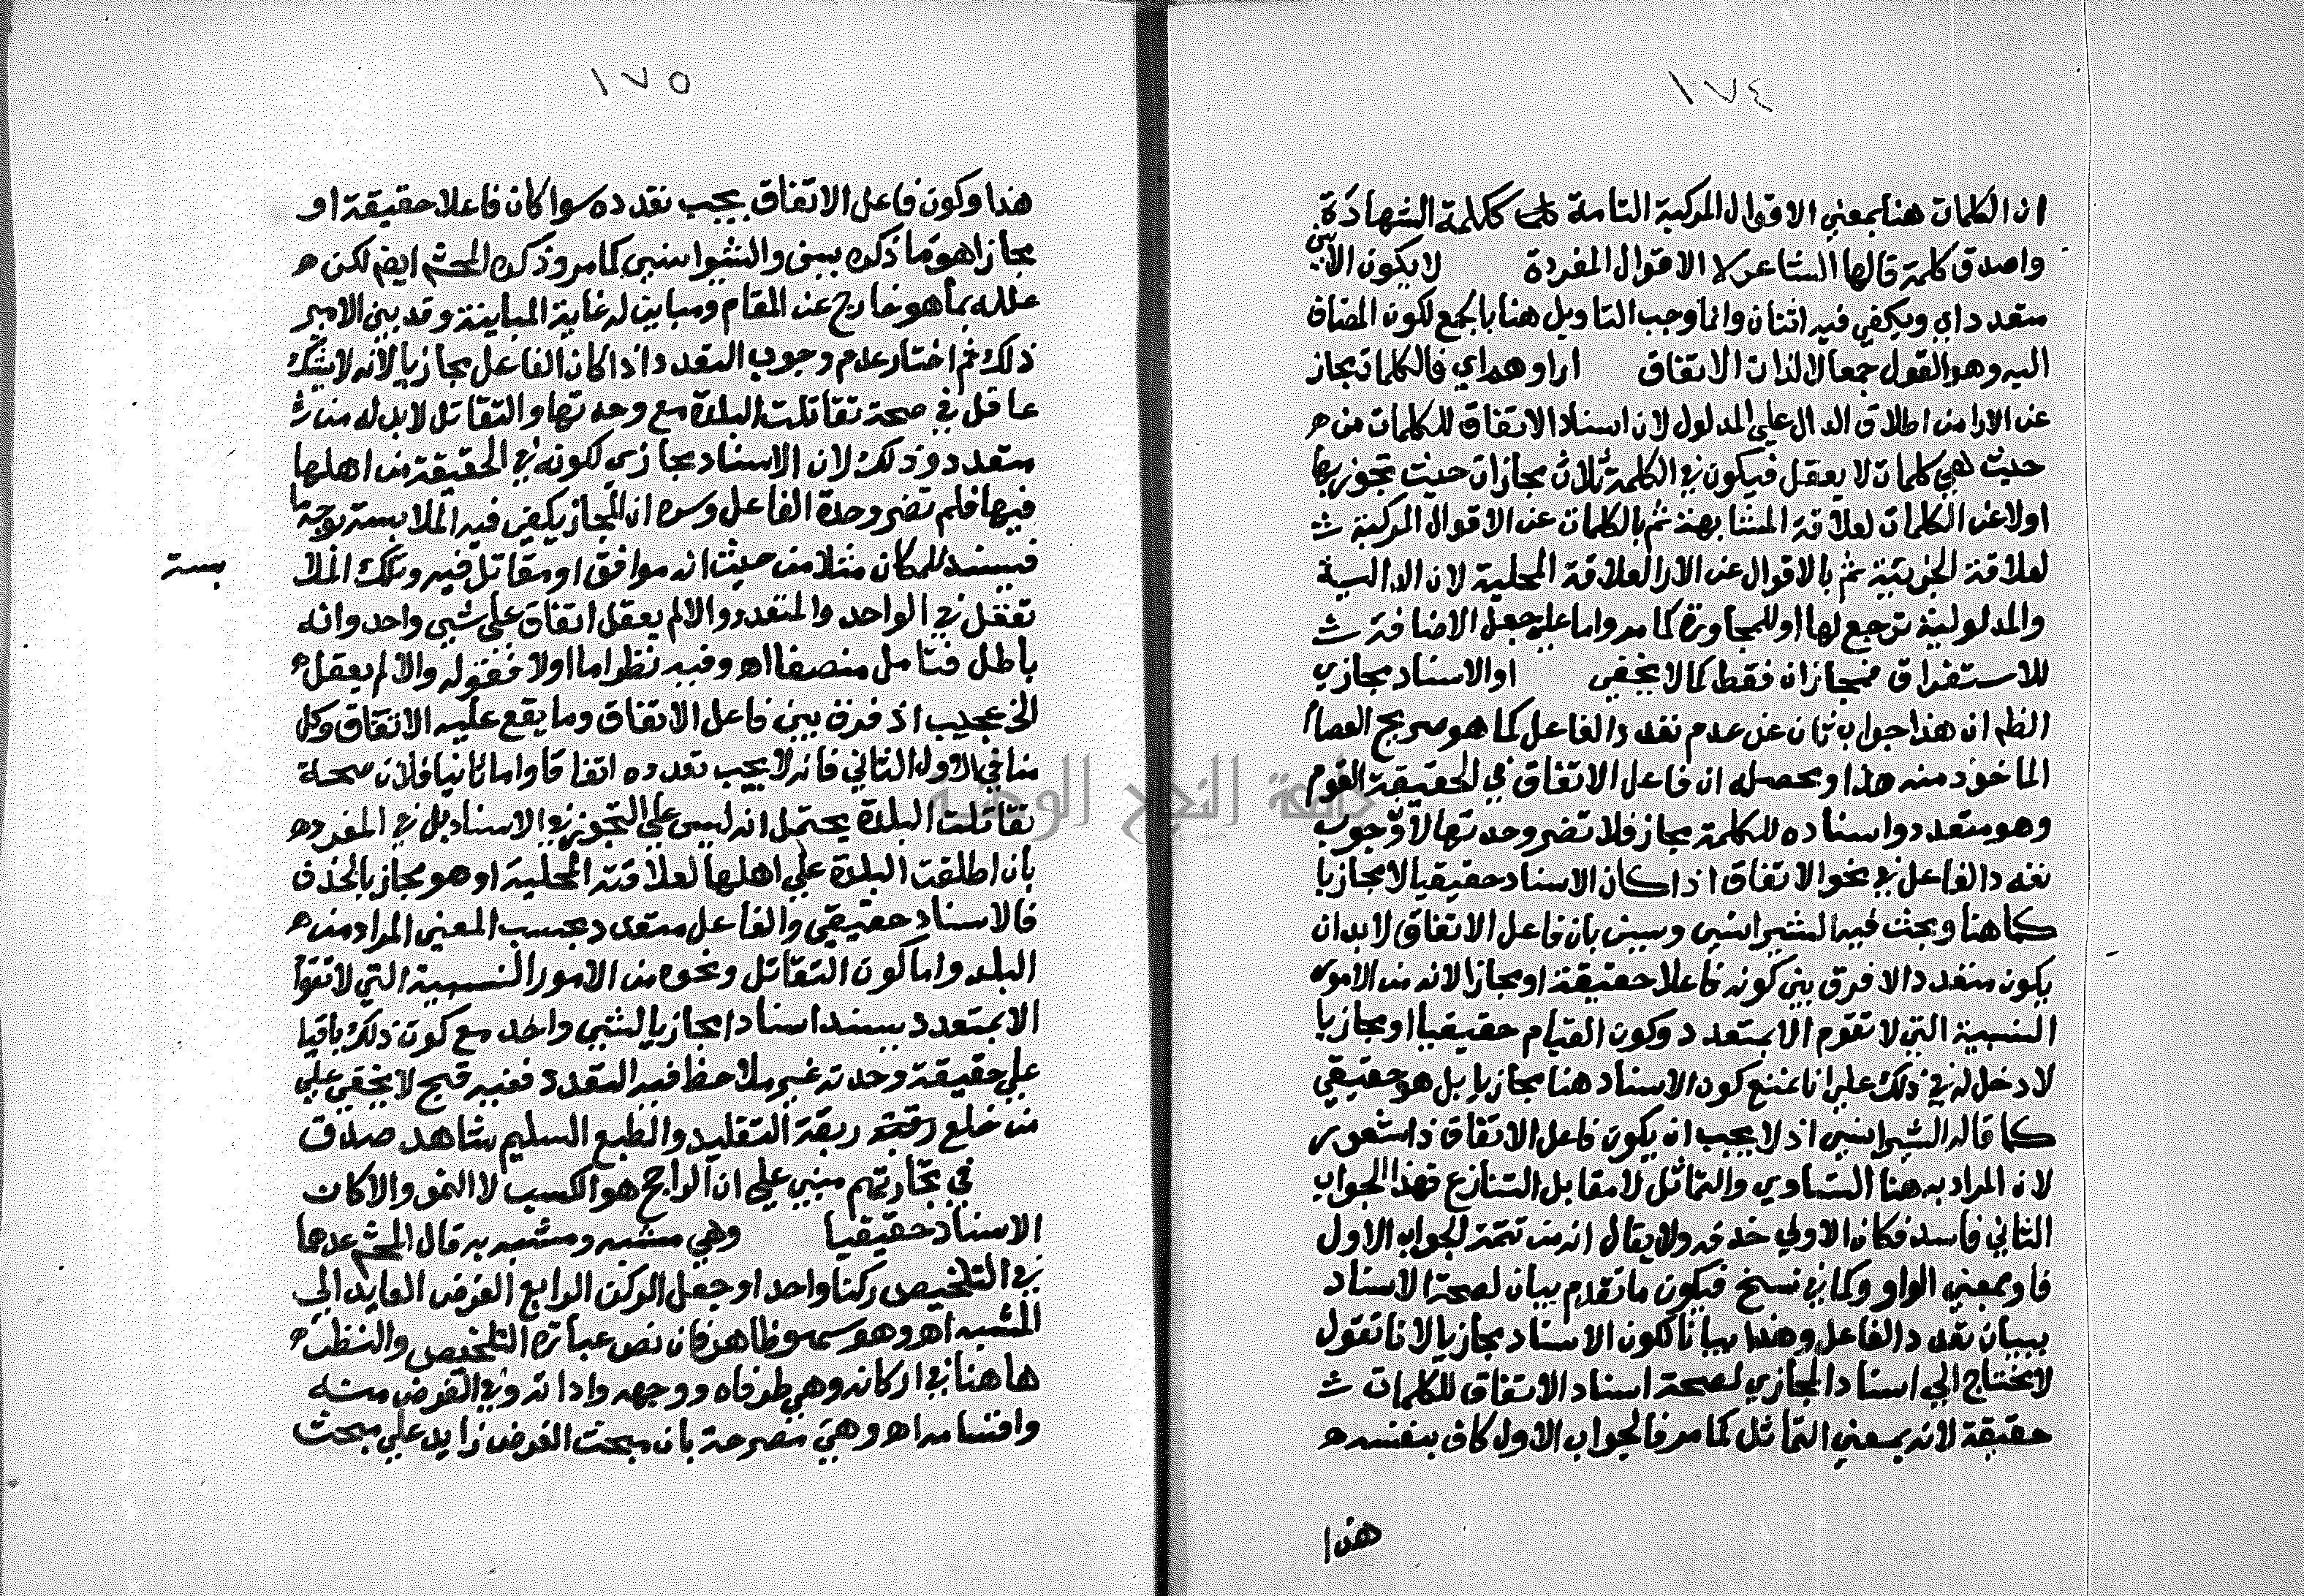 ١٧٤
ان الكلمات هنا بمعني الاقوال المركبة التامة ككلمة الشهادة
واصدق كلمة قالها الشاعر لا الاقوال المفردة لا يكون الا بين
متعدد اي ويكفي فيه اثنان وانما وجب التاويل هنا بالجمع لكون المضاف
اليه وهو القول جمعا لا لذات الاتفاق اراوهم اي فالكلمات مجاز
عن الارا من اطلاق الدال علي المدلول لان اسناد الاتفاق للكلمات من
حيث هي كلمات لا يعقل فيكون في الكلمة ثلاث مجازات حيث تجوز بها
اولا عن الكلمات لعلاقة المشابهة ثم بالكلمات عن الاقوال المركبة
لعلاقة الجزيية ثم بالاقوال عن الارا لعلاقة المحلية لان الدالية
والمدلولية ترجع لها او للمجاورة كما مر واما علي جعل الاضافة
للاستغراق فمجازان فقط كما لا يخفي او الاسناد مجازي
الظم ان هذا جواب ثان عن عدم تعدد الفاعل كما هو صريح العصام
الماخوذ منه هذا ومحصله ان فاعل الاتفاق في الحقيقة القوم
وهو متعدد واسناده للكلمة مجاز فلا تضر وحدتها لا وجوب
تعدد الفاعل في نحو الاتفاق اذا كان الاسناد حقيقيا لا مجازيا
كما هنا وبحث فيه الشيرانسي وسين بان فاعل الاتفاق لا بد ان
يكون متعددا لا فرق بين كونه فاعلا حقيقة او مجازا لانه من الامور
النسبية التي لا تقوم الا بمتعدد وكون القيام حقيقيا او مجازيا
لا دخل له في ذلك علي انا نمنع كون الاسناد هنا مجازيا بل هو حقيقي
كما قاله الشيرانسي اذ لا يجب ان يكون فاعل الاتفاق ذا شعور
لان المراد به هنا التساوي والتماثل لا مقابل التنازع فهذا الجواب
الثاني فاسد فكان الاولي حذفه ولا يقال انه من تتمة الجواب الاول
فاو بمعني الواو وكما في نسخ فيكون ما تقدم بيان لصحة الاسناد
ببيان تعدد الفاعل وهذا بيانا لكون الاسناد مجازيا لانا نقول
لا يحتاج الي اسناد المجازي لصحة اسناد الاتفاق للكلمات
حقيقة لانه بمعني التماثل كما مر فالجواب الاول كاف بنفسه
هذا
١٧٥
هذا وكون فاعل الاتفاق يجب تعدده سوا كان فاعلا حقيقة او
مجازا هو ما ذكره سين والشيرانسي كما مر وذكره المحشم ايضم لكن
علله بما هو خارج عن المقام ومباين له غاية المباينة وقد بين الامير
ذلك ثم اختار عدم وجوب التعدد اذا كان الفاعل مجازيا لانه لا يشك
عاقل في صحة تقاتلت البلدة مع وحدتها والتقاتل لا بد له من
متعدد وذلك لان الاسناد مجازي لكونه في الحقيقة من اهلها
فيها فلم تضر وحدة الفاعل وسره ان المجاز يكفي فيه الملابسة بوجه ما
فيسند للمكان مثلا من حيث انه موافق او مقاتل فيه وتلك الملا
بسة
تعقل في الواحد والمتعدد والا لم يعقل اتفاق علي شي واحد وانه
باطل فتامل منصفا اه وفيه نظر اما اولا فقوله والا لم يعقل
الخ عجيب اذ فرق بين فاعل الاتفاق وما يقع عليه الاتفاق وكلا
منا في الاول الثاني فانه لا يجب تعدده اتفاقا واما ثانيا فلان صحة
تقاتلت البلدة يحتمل انه ليس علي التجوز في الاسناد بل في المفرد
بان اطلقت البلدة علي اهلها لعلاقة المحلية او هو مجاز بالحذف
فالاسناد حقيقي والفاعل متعدد بحسب المعني المراد من
البلد واما كون التقاتل ونحوه من الامور النسبية التي لا تقوم
الا بمتعدد يسند اسنادا مجازيا لشي واحد مع كون ذلك باقيا
علي حقيقة وحدته غير ملاحظ فيه التعدد ففيه قبح لا يخفي علي
من خلع ربقة التقليد والطبع السليم شاهد صدق
في تجارتهم مبني علي ان الرابح هو الكسب لا النمو والا كان
الاسناد حقيقيا وهي مشبه ومشبه به قال المحشم عدهما
في التلخيص ركنا واحدا وجعل الركن الرابع الغرض العايد الي
المشبه اه وهو سهو ظاهر فان نص عبارة التلخيص والنظر
هاهنا في اركانه وهي طرفاه ووجهه واداته وفي الغرض منه
واقسامه اه وهي مصرحة بان مبحث الغرض زايد علي مبحث